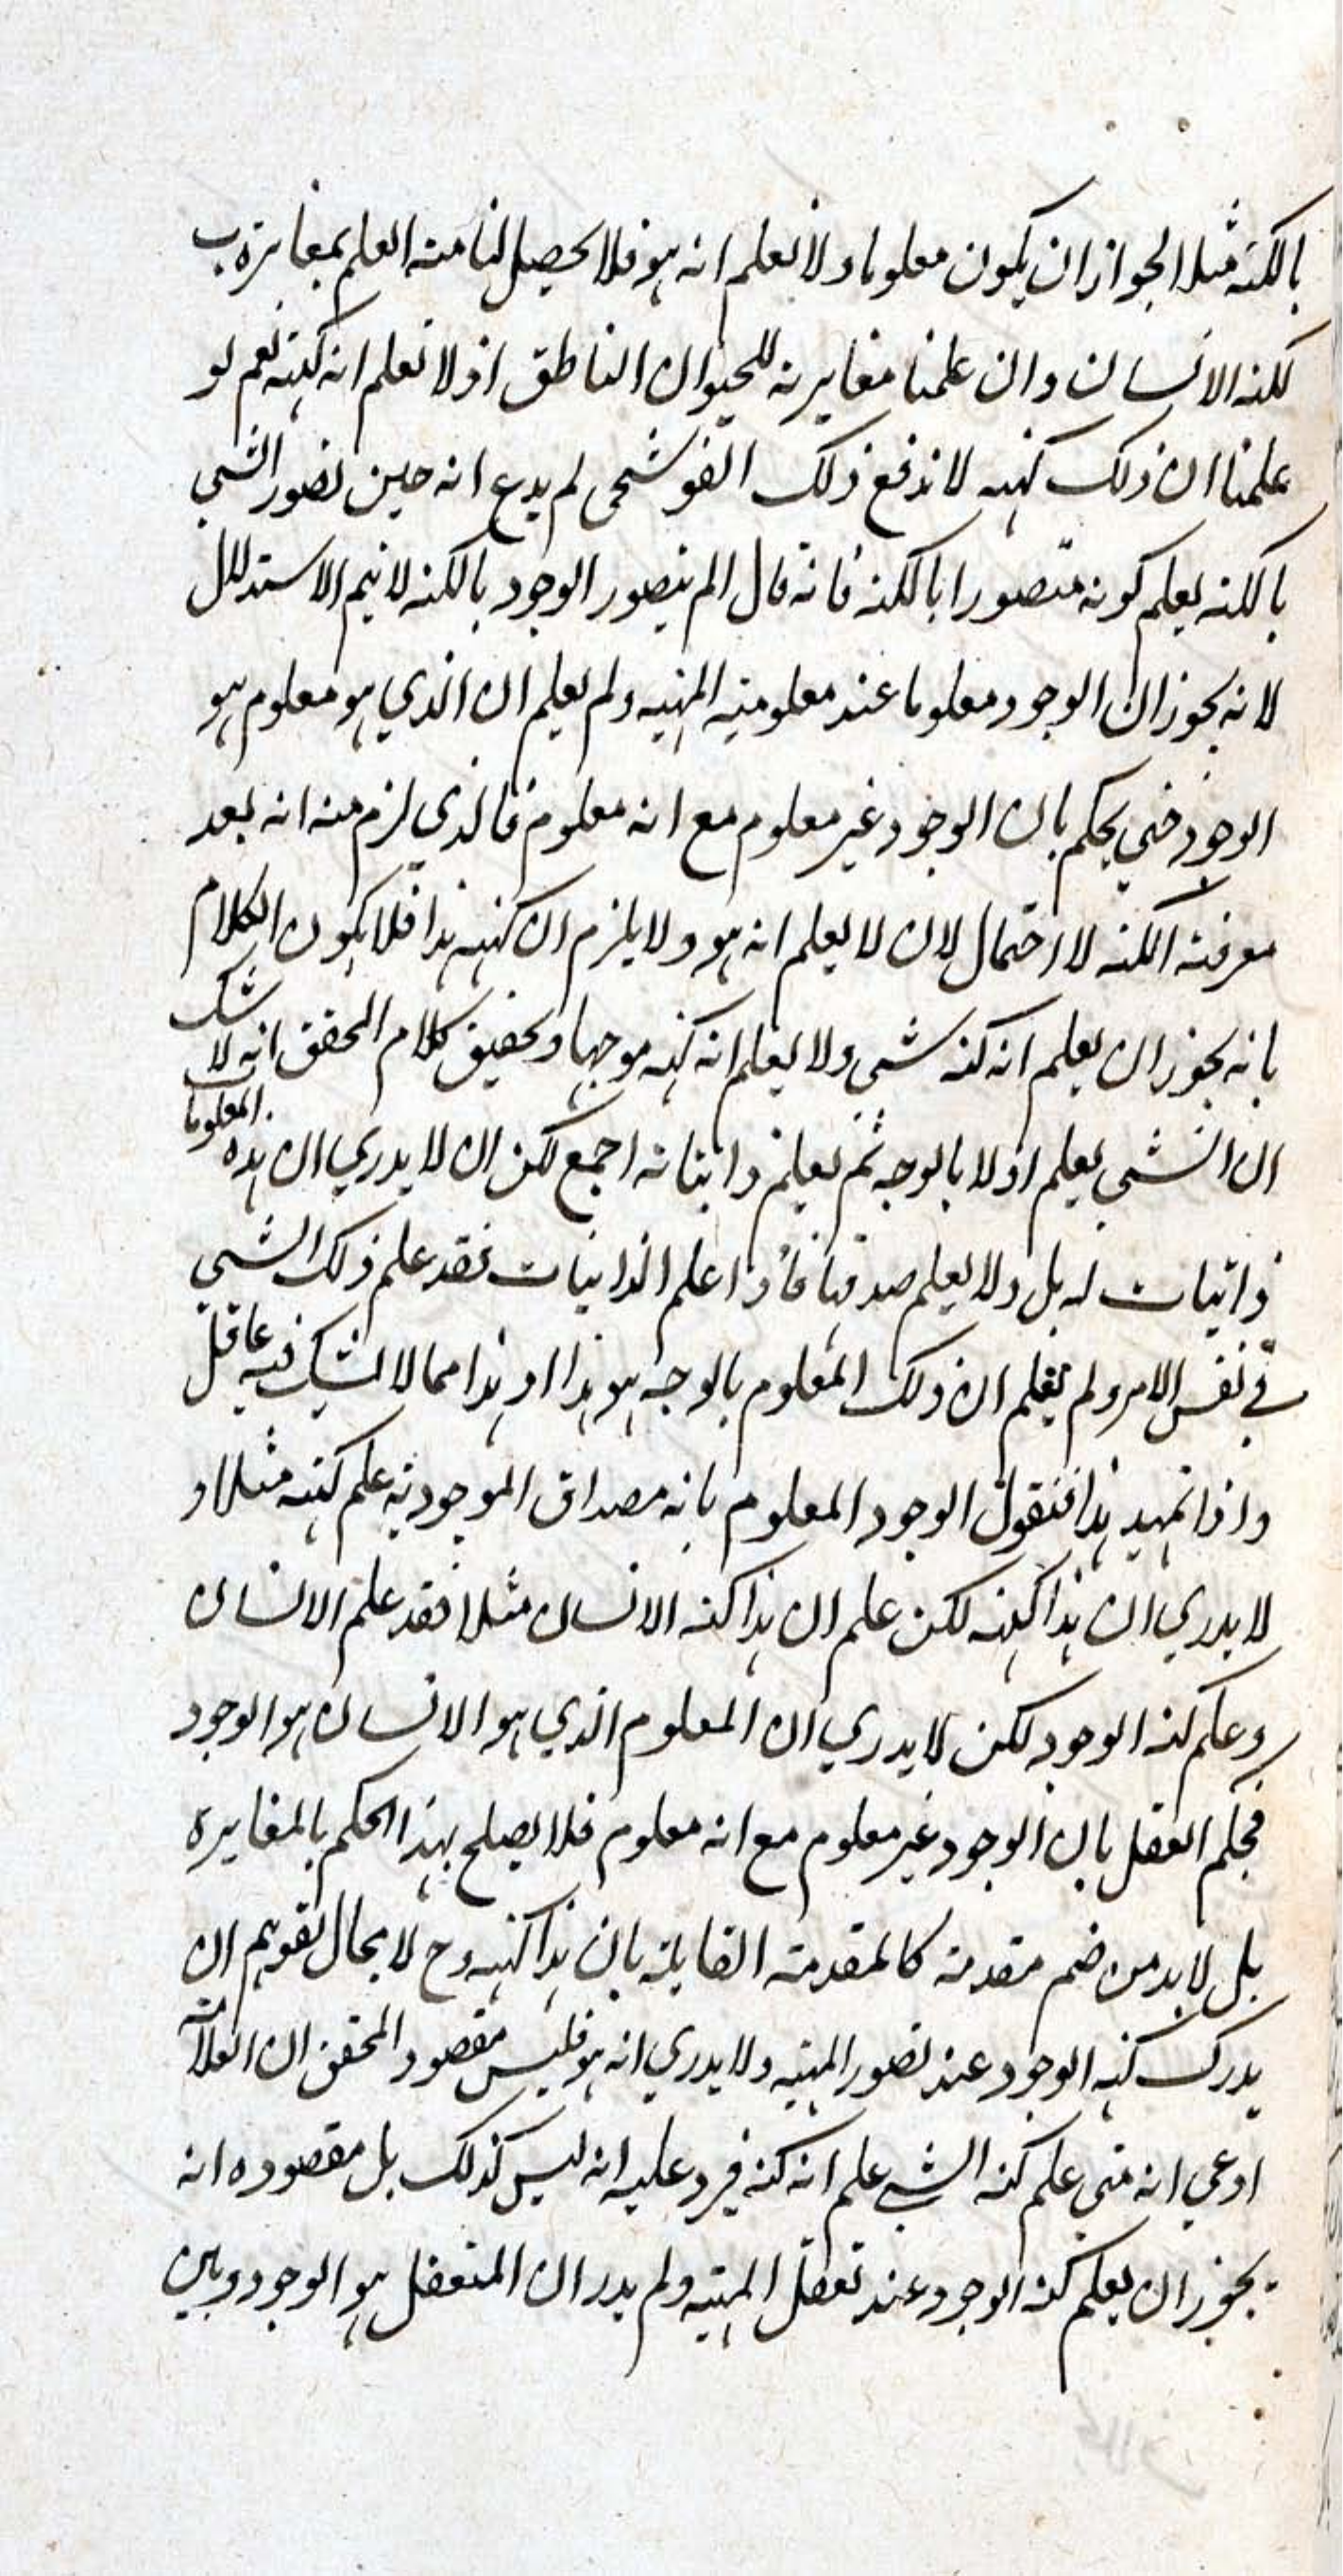 بالكنه مثلا لجواز ان يكون معلوما ولا نعلم انه هو فلا يحصل لنا منه العلم بمغايرة ب
لكنه الانسان وان علمنا مغايرته للحيوان الناطق اذ لا نعلم انه كنهه نعم لو
علمنا ان ذلك كنهه لاندفع ذلك القوشجى لم يدع انه حين تصور الشي
بالكنه يعلم كونه متصورا بالكنه فانه قال الم يتصور الوجود بالكنه لا يتم الاستدلال
لانه يجوز ان الوجود معلوما عند معلومية المهيه ولم يعلم ان الذي هو معلوم هو
الوجود حتي يحكم بان الوجود غير معلوم مع انه معلوم فالذي لزم منه انه بعد
معرفته الكنه لا احتمال لان لا يعلم انه هو ولا يلزم ان كنهه هذا فلا يكون الكلام
بانه يجوز ان يعلم انه كنه شى ولا يعلم انه كنهه موجها وتحقيق كلام المحقق انه لا شك
ان الشي يعلم اولا بالوجه ثم يعلم ذاتياته اجمع لكن ان لا يدري ان هذه المعلومات
ذاتيات له بل ولا يعلم صدقها فاذا علم الذاتيات فقد علم ذلك الشي
في نفس الامر ولم يعلم ان ذلك المعلوم بالوجه هو هذا او هذا مما لا يشك فيه عاقل
واذا تمهد هذا فنقول الوجود المعلوم بانه مصداق الموجودية علم كنهه مثلا و
لا يدري ان هذا كنهه لكن علم ان هذا كنه الانسان مثلا فقد علم الانسان
وعلم كنه الوجود لكن لا يدري ان المعلوم الذي هو الانسان هو الوجود
فحكم العقل بان الوجود غير معلوم مع انه معلوم فلا يصلح بهذا الحكم بالمغايرة
بل لا بد من ضم مقدمة كالمقدمة القايلة بان هذا كنهه وح لا مجال لقولهم ان
يدرك كنه الوجود عند تصور المهيه ولا يدري انه هو فليس مقصود المحقق ان العلامة
ادعي انه متي علم كنه الشي علم انه كنه فيرد عليه انه ليس كذلك بل مقصوده انه
يجوز ان يعلم كنه الوجود عند تعقل المهيه ولم يدر ان المتعقل هو الوجود وبين